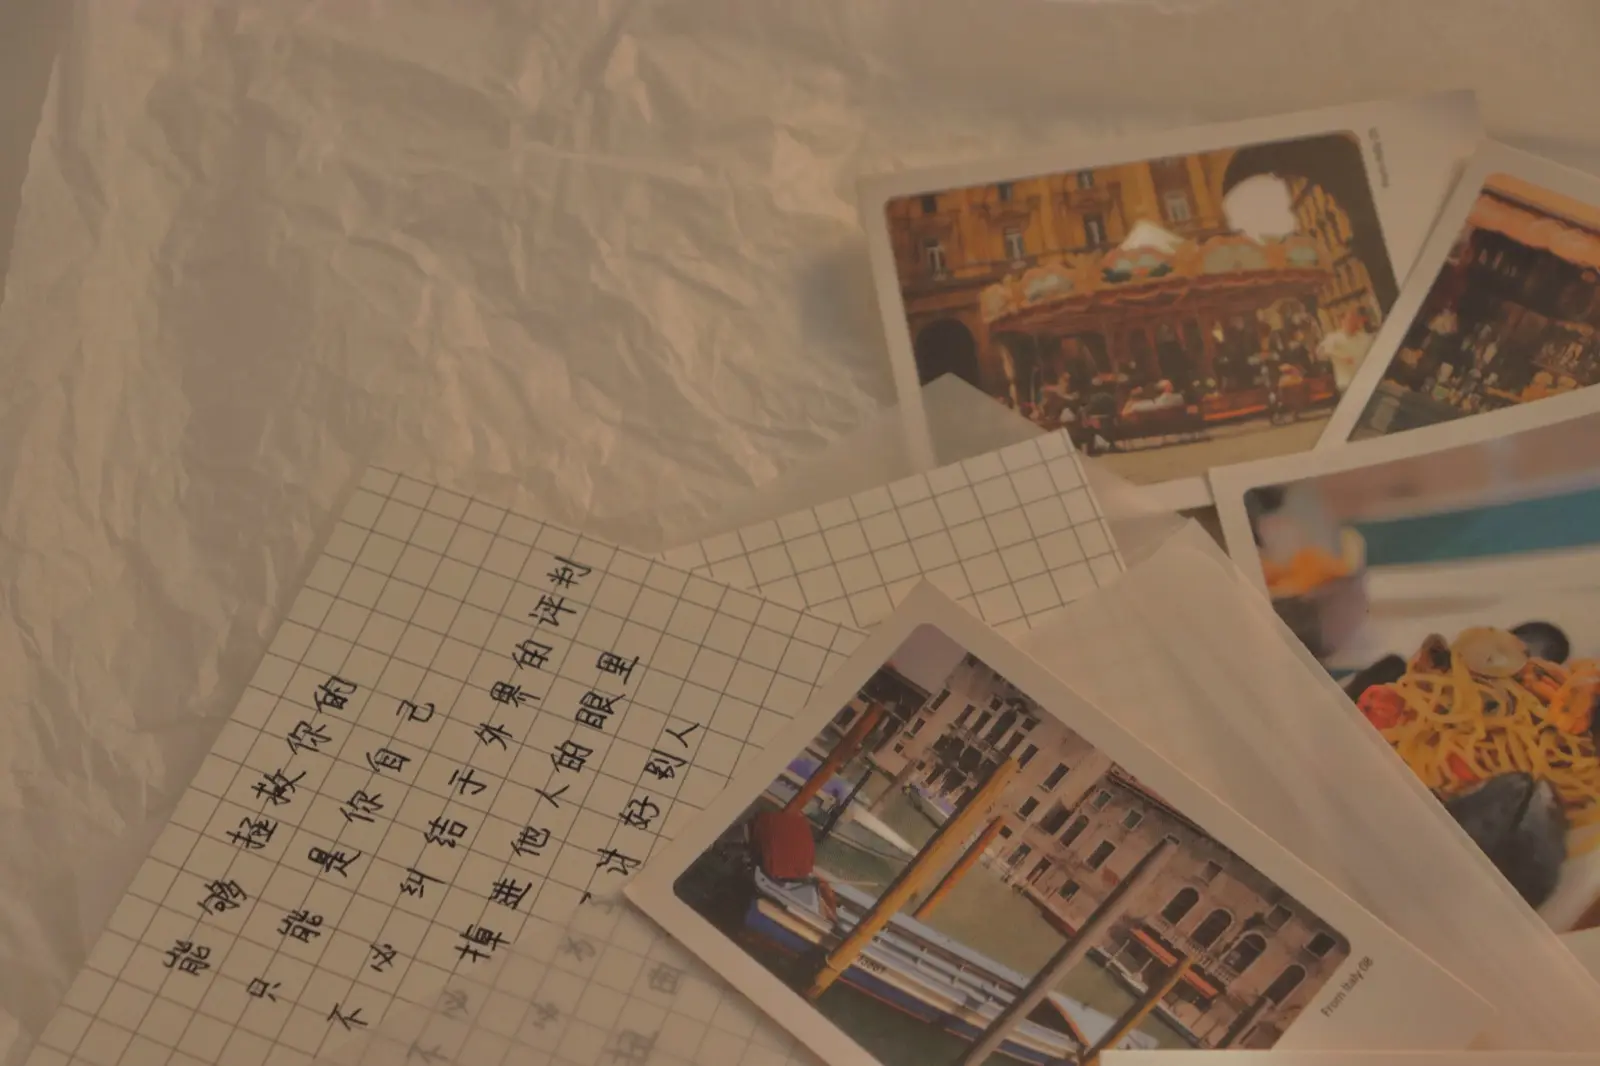 能够拯救你的
只能是你自己
不必纠结于外界的评判
不必掉进他人的眼里
讨好别人
扭曲
From Italy.08